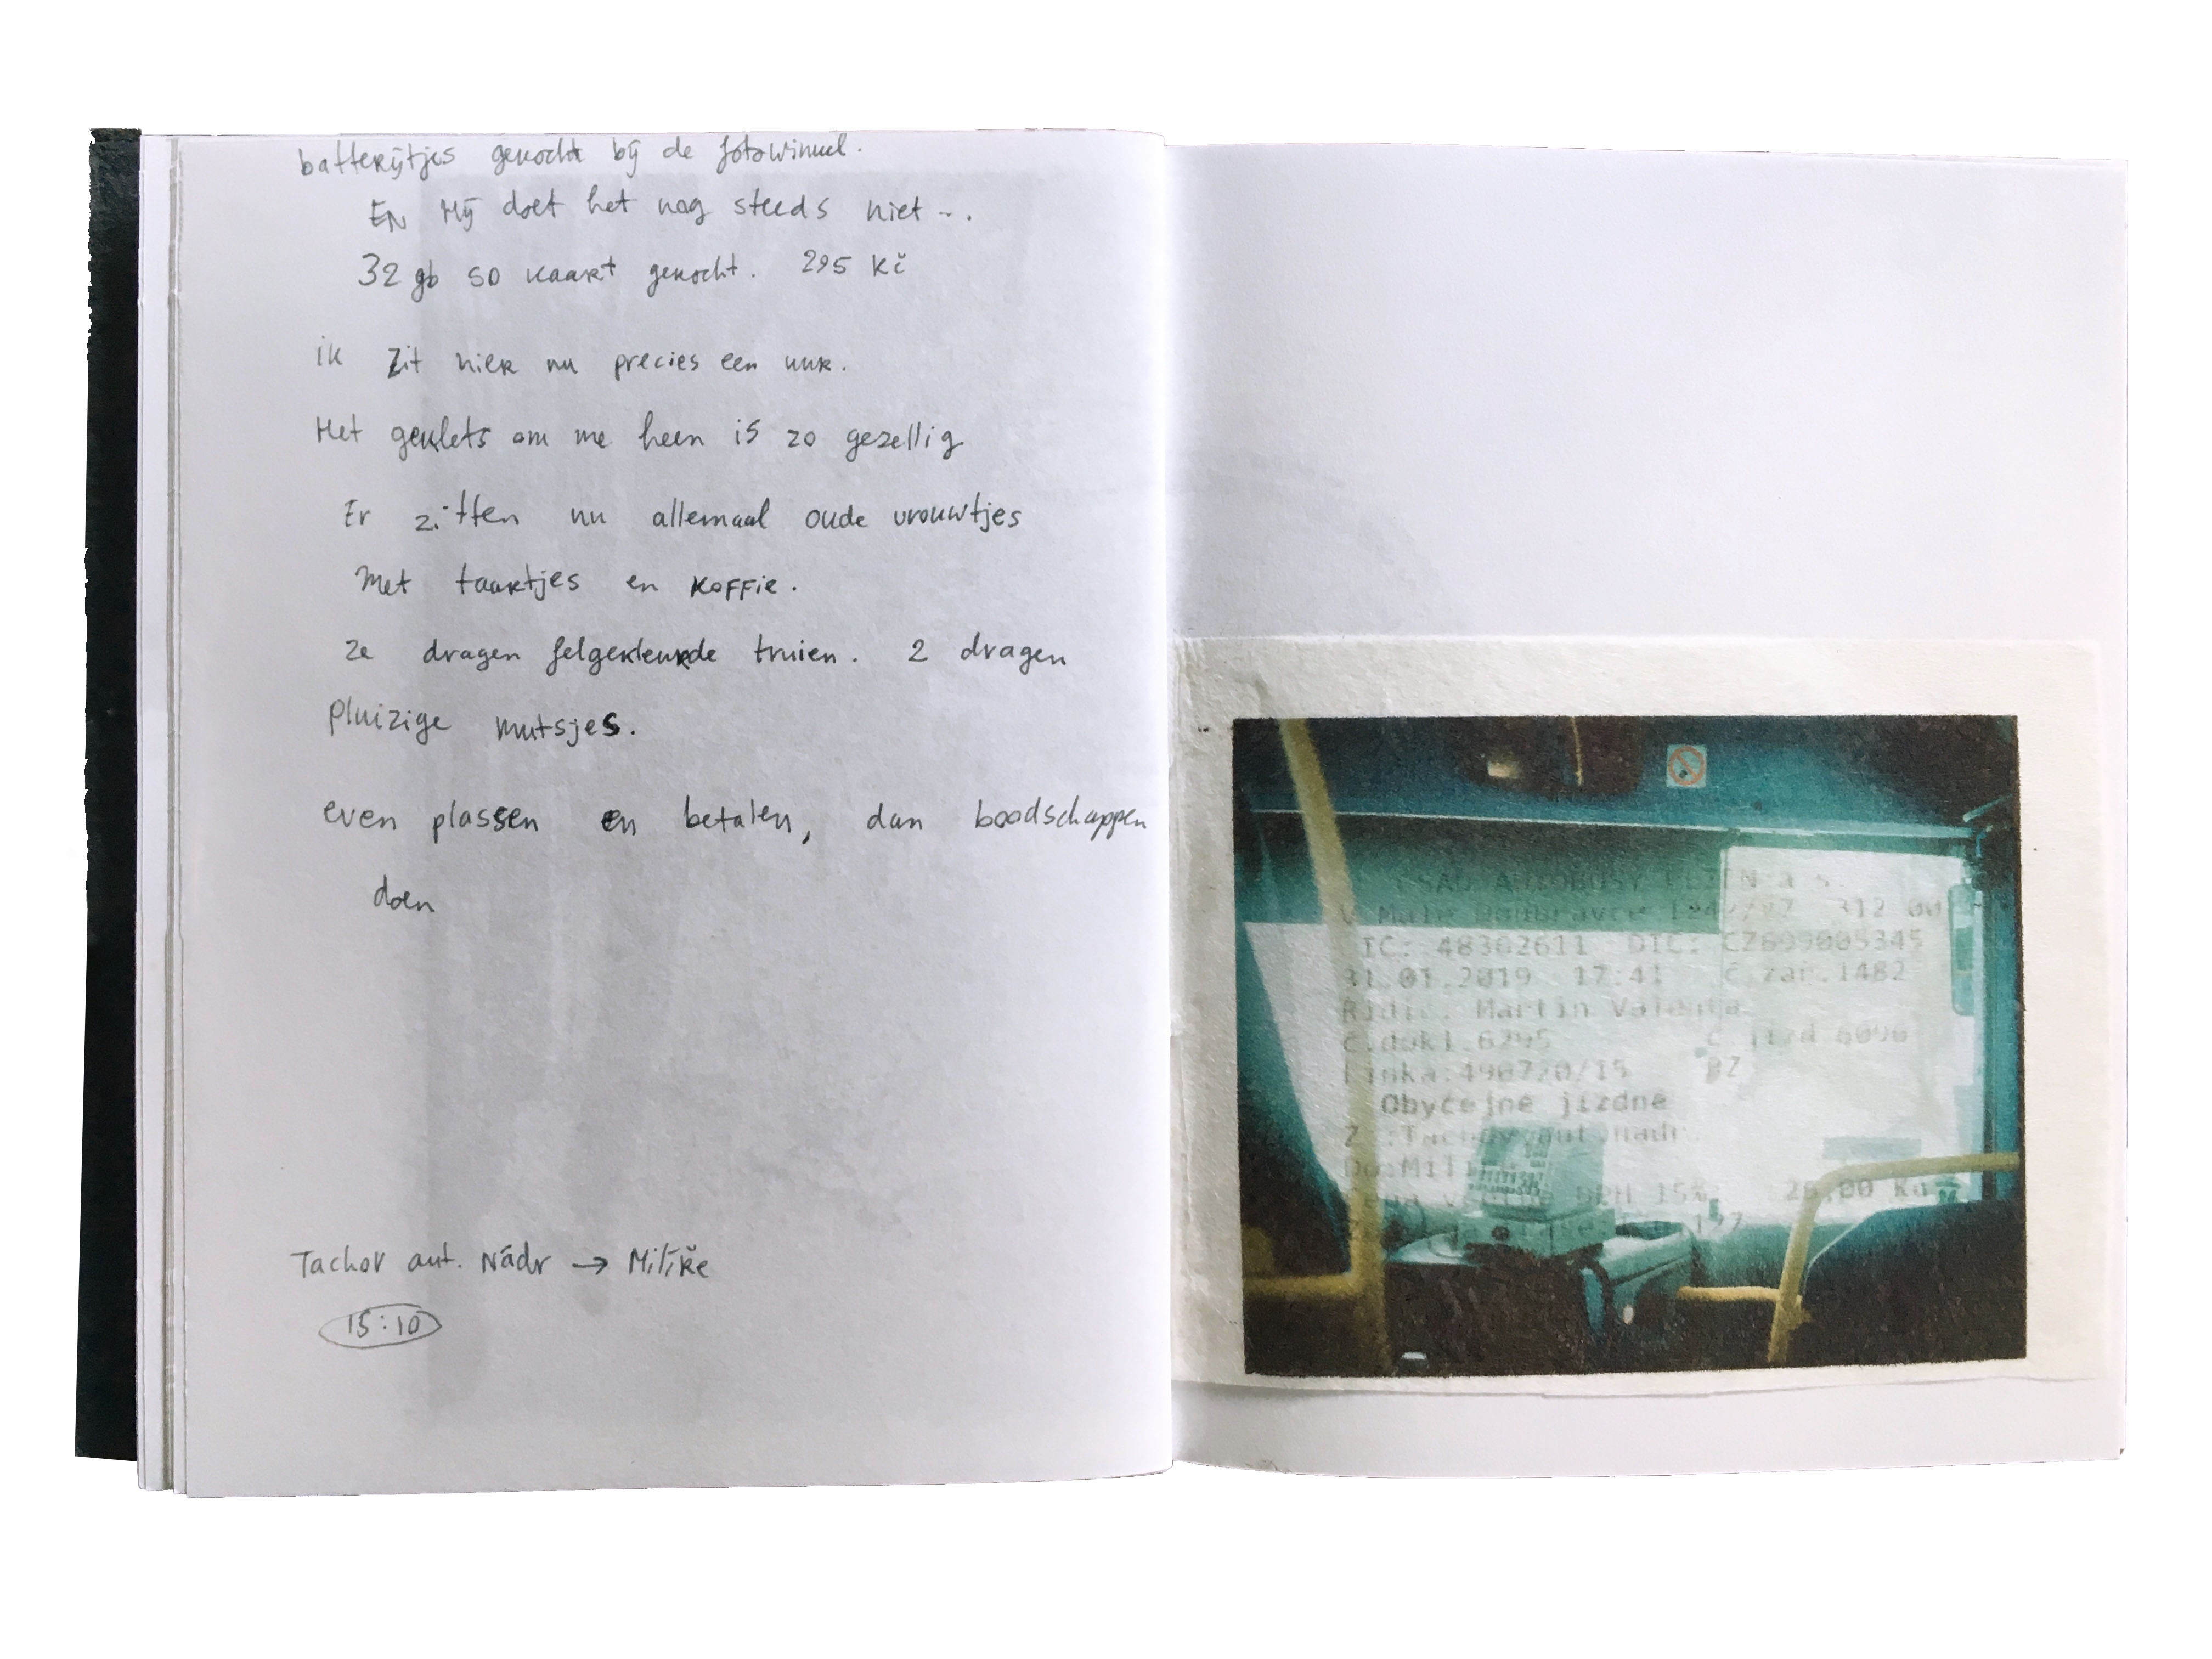 batterijtjes gekocht bij de fotowinkel.
EN Hij doet het nog steeds niet...
32 gb SD kaart gekocht. 295 Kč
ik zit hier nu precies een uur.
Het geklets om me heen is zo gezellig
Er zitten nu allemaal oude vrouwtjes
Met taartjes en koffie.
ze dragen felgekleurde truien. 2 dragen
pluizige mutsjes.
even plassen en betalen, dan boodschappen
doen
Tachov aut. Nádr → Milíře
15:10
ČSAD AUTOBUSY PLZEŇ a.s.
V Malé Doubravce 312 00
IC: 48362611 DIC: CZ699005345
31.01.2019 17:41 č.zar.1482
Ridic: Martin Valenta
č.dokl.6295 č jizd 6090
Linka:490720/15
Obyčejné jízdné
Z :Tachov, aut.nádr.
Do:Milíře
DPH 15% 26.00 Kč